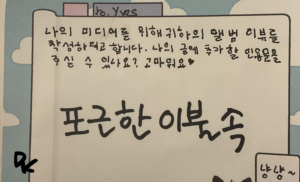 to. Yves
나의 미디어를 위해 귀하의 앨범 리뷰를
작성하려고 합니다. 나의 글에 추가할 인용문을
주실 수 있나요? 고마워요♥
포근한 이불 속
냥냥~